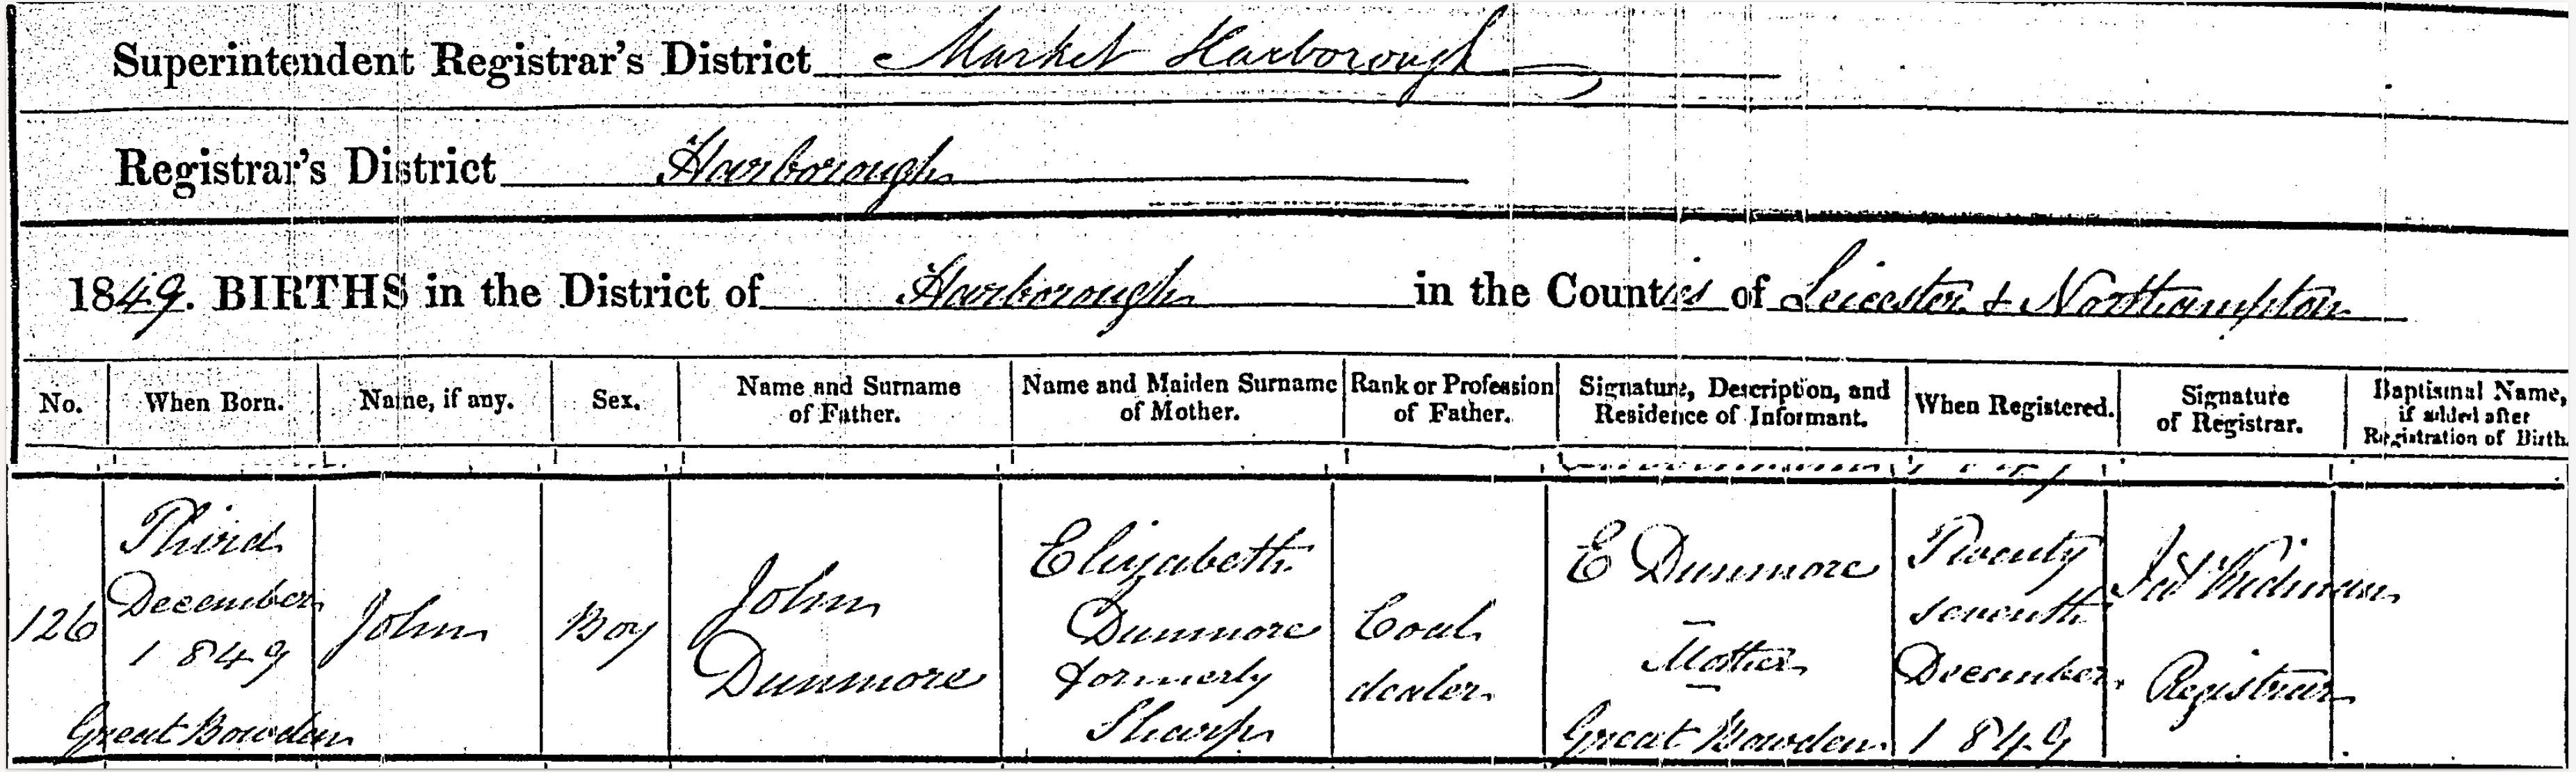 Superintendent Registrar's District Market Harborough
Registrar's District Harborough
1849. BIRTHS in the District of Harborough in the Counties of Leicester & Northampton
No.
When Born.
Name, if any.
Sex.
Name and Surname
of Father.
Name and Maiden Surname
of Mother.
Rank or Profession
of Father.
Signature, Description, and
Residence of Informant.
When Registered.
Signature
of Registrar.
Baptismal Name,
if added after
Registration of Birth.
126
Third
December
1849
Great Bowden
John
Boy
John
Dunmore
Elizabeth
Dunmore
formerly
Sharp
Coal
dealer
E Dunmore
Mother
Great Bowden
Twenty
seventh
December
1849
Registrar